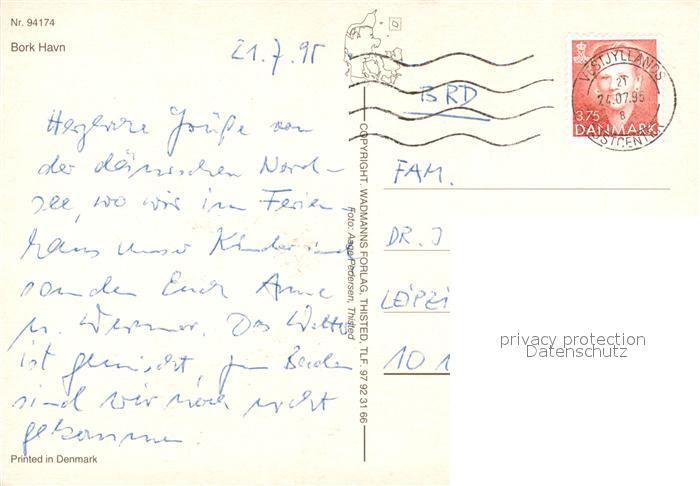 Nr. 94174
Bork Havn
21.7.95
BRD
Herzliche Grüße von
der dänischen Nord-
see, wo wir im Ferien-
haus unser Kinder sind
senden Euch Anne
u. Werner. Das Wetter
ist gemischt, zum Baden
sind wir noch nicht
gekommen
Printed in Denmark
COPYRIGHT. WADMANNS FORLAG, THISTED, TLF. 97 92 31 66
Foto: Aage Pedersen, Thisted
VESTJYLLANDS
21
24.07.95
8
POSTCENTER
3.75
DANMARK
FAM.
DR. J
LEIPZI
10 1
privacy protection
Datenschutz